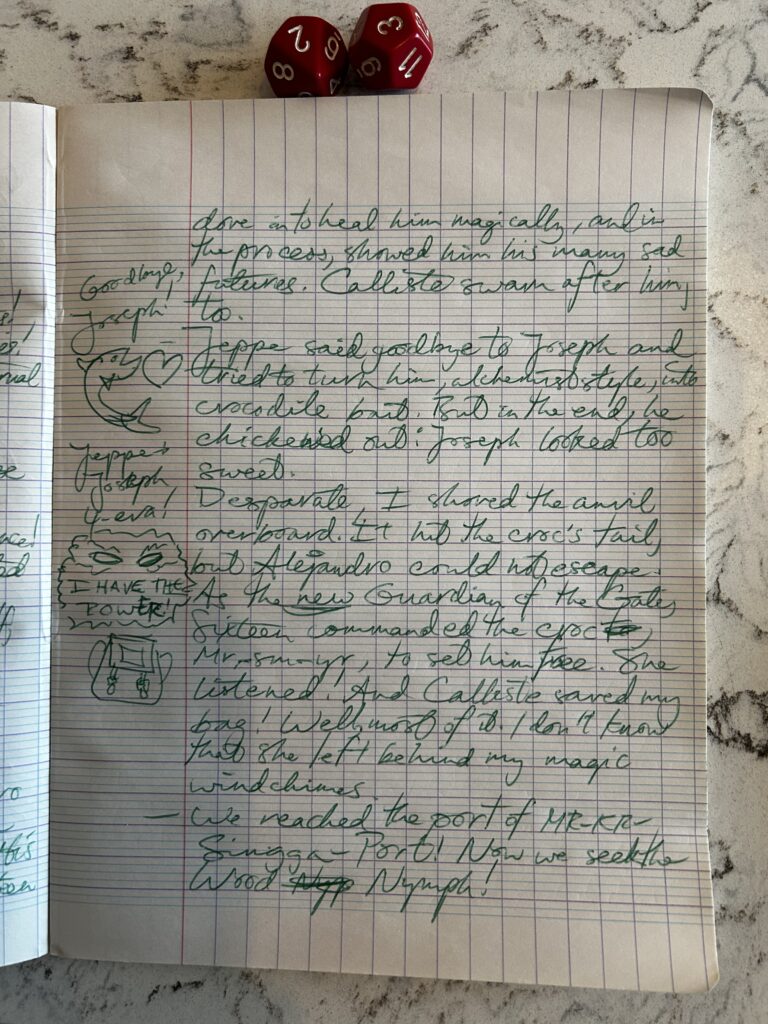 dove in to heal him magically, and in
the process, showed him his many sad
futures. Calliste swam after him,
too.
- Jeppe said goodbye to Joseph and
tried to turn him, alchemist style, into
crocodile bait. But in the end, he
chickened out: Joseph looked too
sweet.
Desparate, I shoved the anvil
overboard. It hit the croc's tail,
but Alejandro could not escape.
As the new Guardian of the Gates,
Sixteen commanded the croc,
Mr.-sm-yr, to set him free. She
listened! And Calliste saved my
bag! Well, most of it. I don't know
that she left behind my magic
windchimes.
- We reached the port of MR-KR-
Singga-Port! Now we seek the
Wood Nymph!
Goodbye,
Joseph!
Jeppe +
Joseph
4-eva!
I HAVE THE
POWER!
2
8
9
3
11
9